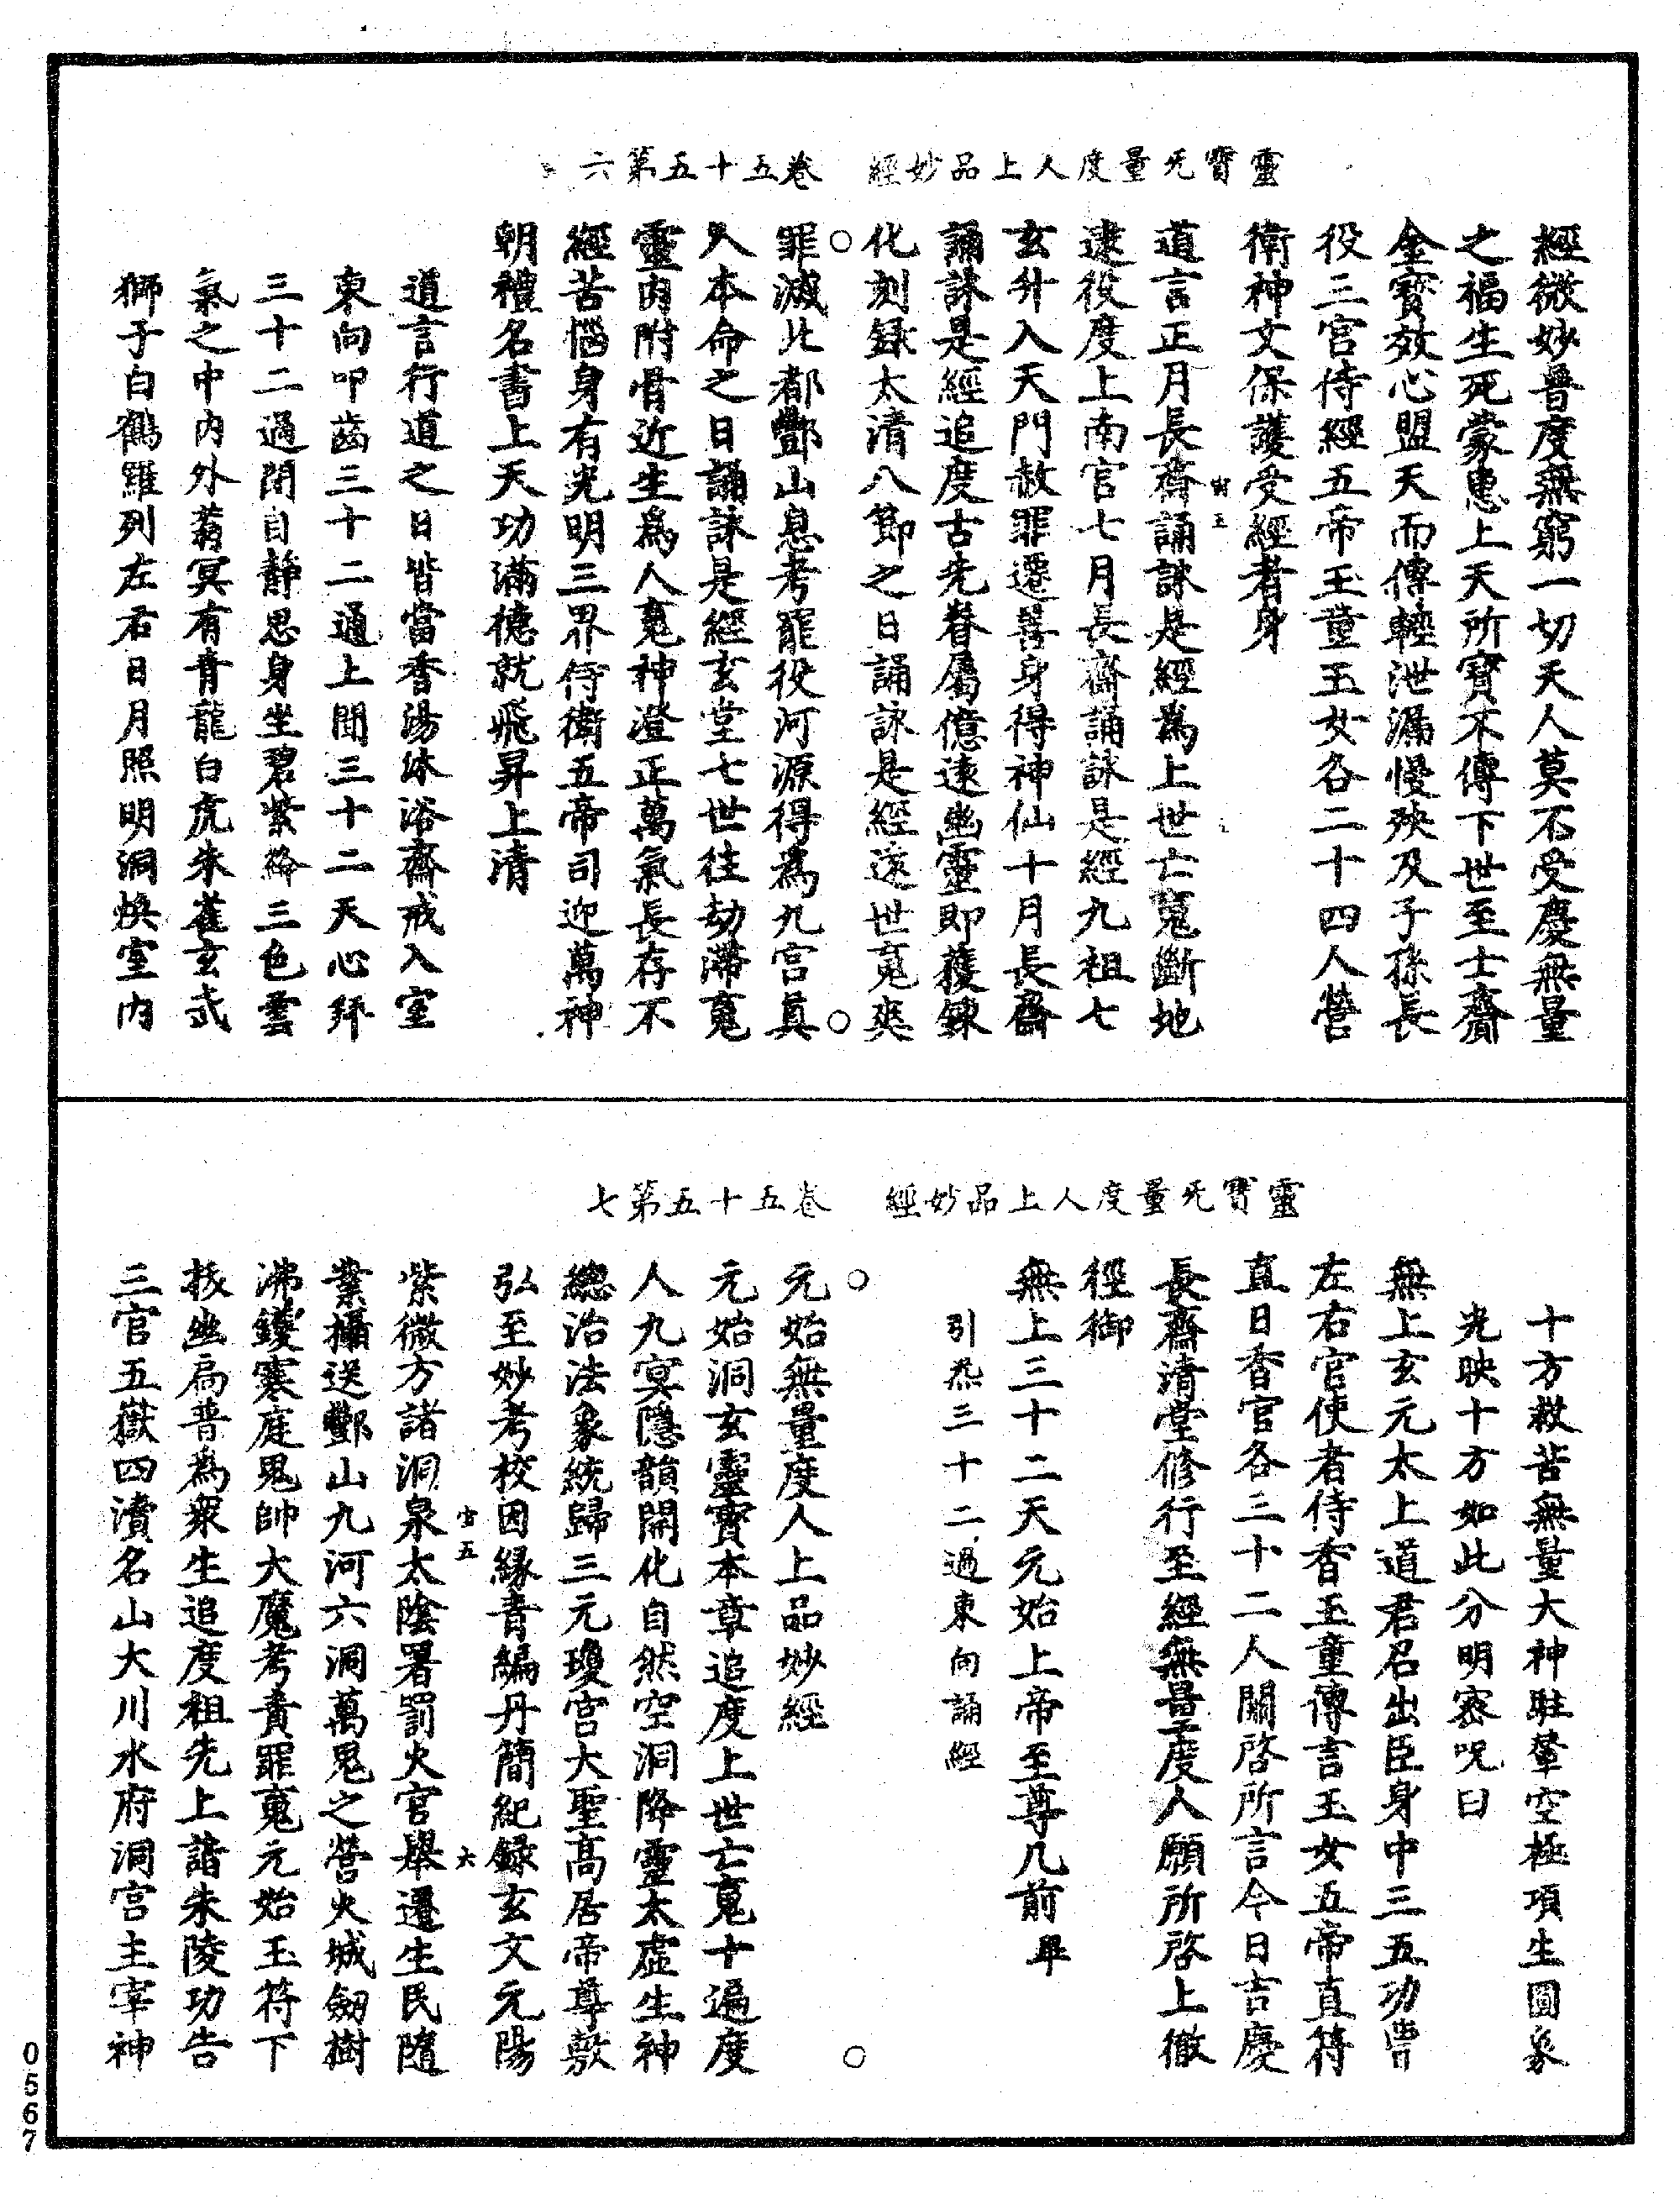 靈寶无量度人上品妙經　卷五十五第六
經微妙普度無窮一切天人莫不受慶無量
之福生死蒙惠上天所寶不傳下世至士齎
金寶效心盟天而傳輕泄漏慢殃及子孫長
役三官侍經五帝玉童玉女各二十四人營
衛神文保護受經者身
道言正月長齋誦詠是經爲上世亡䰟斷地
逮役度上南宮七月長齋誦詠是經九祖七
玄升入天門赦罪遷善身得神仙十月長齋
誦詠是經追度古先眷屬億遠幽靈即獲鍊
化刻録太清八節之日誦詠是經遠世䰟爽
罪滅北都酆山息考罷役河源得爲九宮真
人本命之日誦詠是經玄堂七世往劫滯䰟
靈肉附骨近生爲人䰟神澄正萬氣長存不
經苦惱身有光明三界侍衛五帝司迎萬神
朝禮名書上天功滿德就飛昇上清
道言行道之日皆當香湯沐浴齋戒入室
東向叩齒三十二通上聞三十二天心拜
三十二過閉目靜思身坐碧紫絳三色雲
氣之中内外蓊冥有青龍白虎朱雀玄武
獅子白鶴羅列左右日月照明洞煥室内
靈寶无量度人上品妙經　卷五十五第七
十方救苦無量大神駐輦空極項生圓象
光映十方如此分明密呪曰
無上玄元太上道君召出臣身中三五功曹
左右官使者侍香玉童傳言玉女五帝直符
直日香官各三十二人關啓所言今日吉慶
長齋清堂修行至經無量度人願所啓上徹
徑御
無上三十二天元始上帝至尊几前畢
引炁三十二過東向誦經
元始無量度人上品妙經
元始洞玄靈寶本章追度上世亡䰟十遍度
人九冥隱韻開化自然空洞降靈太虛生神
總治法象統歸三元瓊宮大聖高居帝尊敷
弘至妙考校因緣青編丹簡紀録玄文元陽
紫微方諸洞泉太陰署罰火官舉遷生民隨
業攝送酆山九河六洞萬鬼之營火城劒樹
沸鑊寒庭鬼帥大魔考責罪䰟元始玉符下
拔幽扃普爲衆生追度祖先上諧朱陵功告
三官五嶽四瀆名山大川水府洞宮主宰神
0567